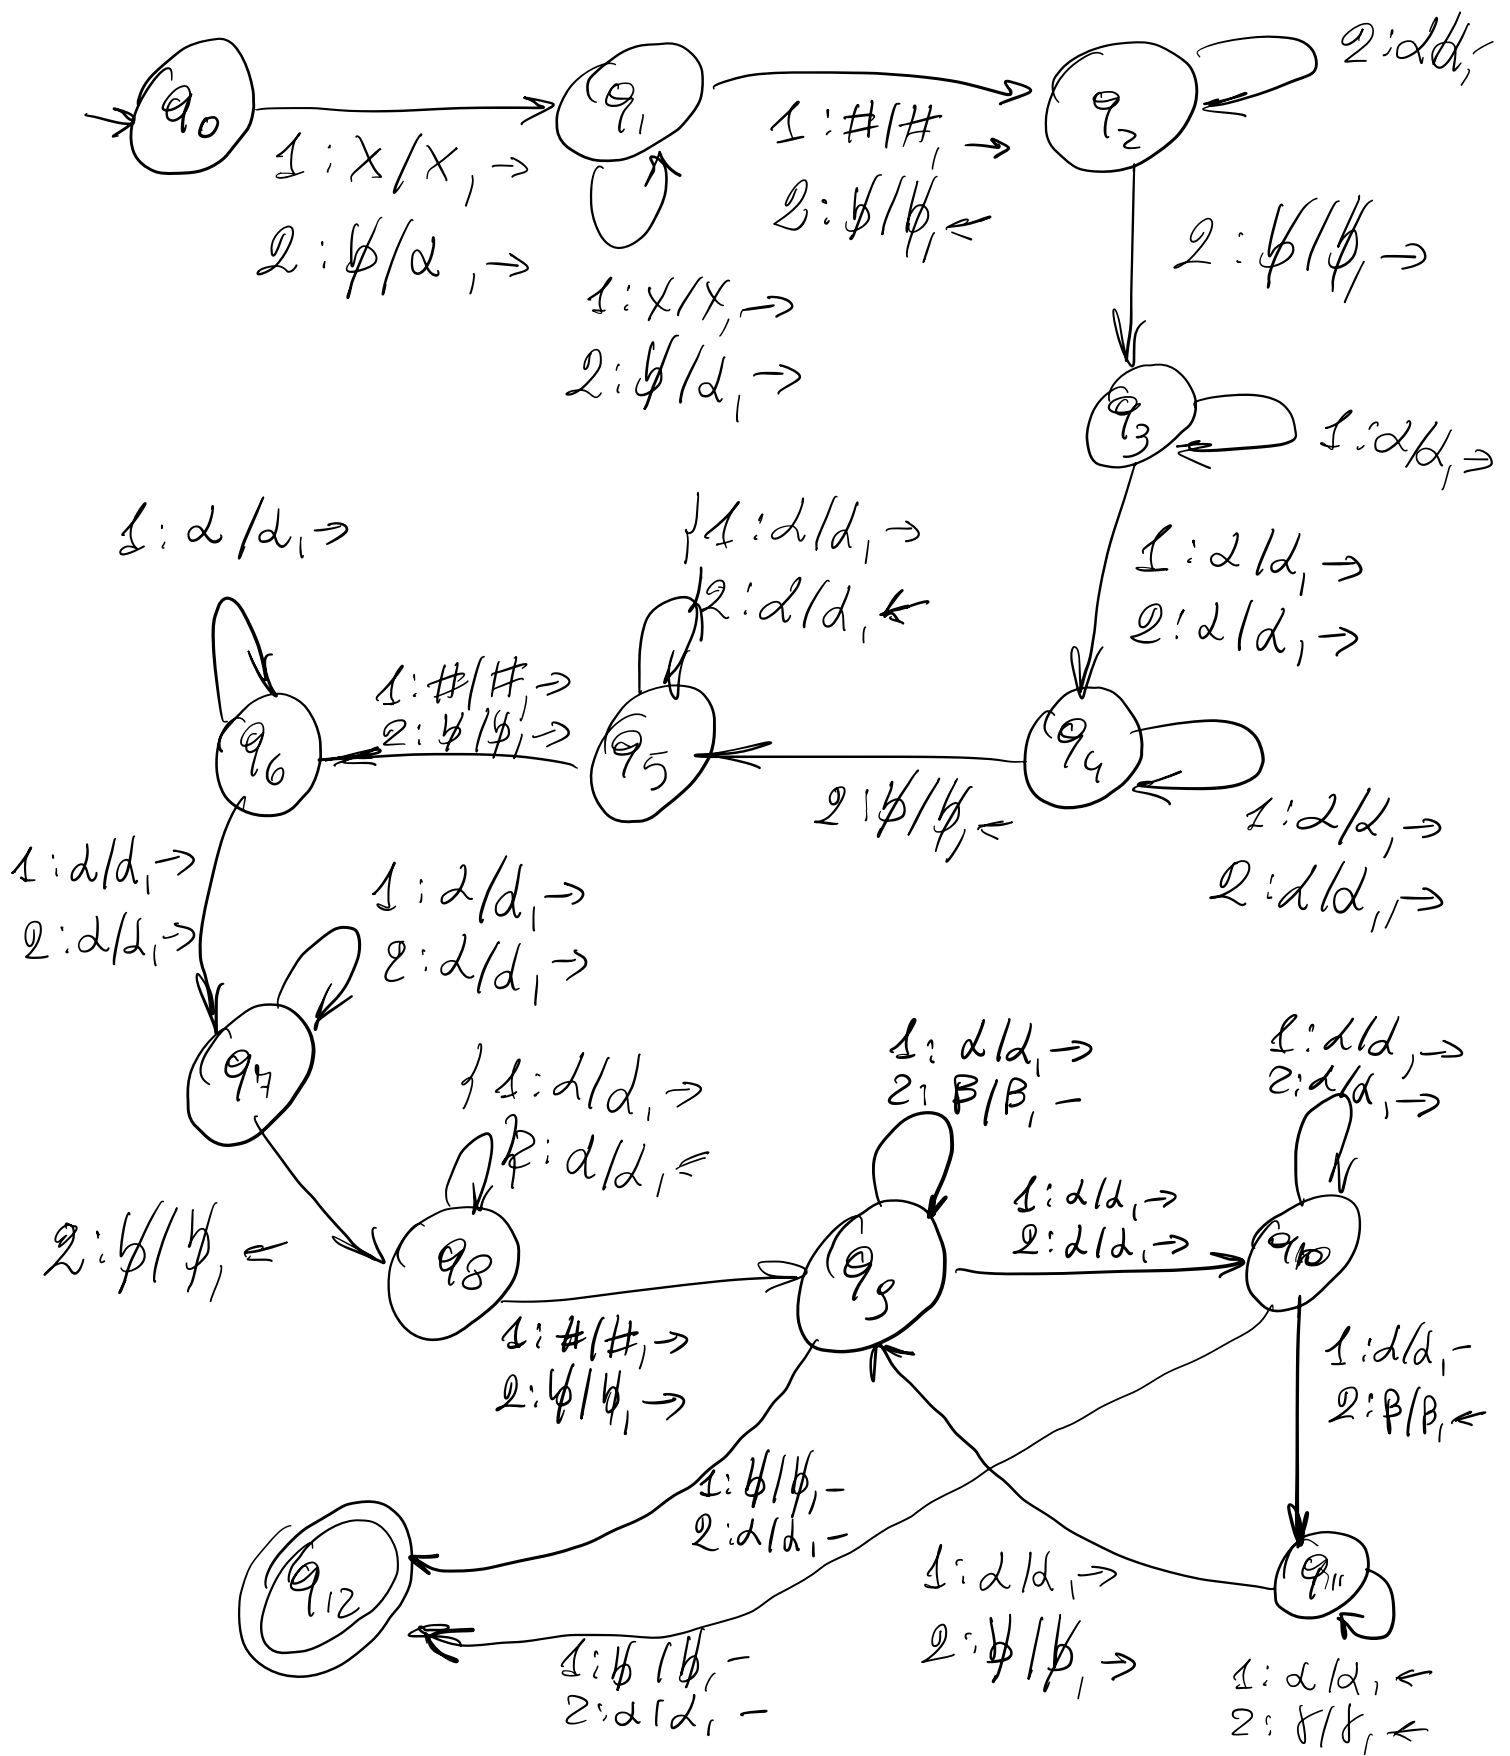 q0
1:X/X,→
2:ƀ/α,→
q1
1:X/X,→
2:ƀ/α,→
1:#/#,→
2:ƀ/ƀ,←
q2
2:αα,-
2:ƀ/ƀ,→
q3
1:α/α,→
1:α/α,→
2:α/α,→
q4
1:α/α,→
2:α/α,,→
2:ƀ/ƀ,←
q5
1:α/α,→
2:α/α,←
1:#/#,→
2:ƀ/ƀ,→
q6
1:α/α,→
1:α/α,→
2:α/α,→
q7
1:α/α,→
2:α/α,→
2:ƀ/ƀ,←
q8
1:α/α,→
2:α/α,←
1:#/#,→
2:ƀ/ƀ,→
q9
1:α/α,→
2:β/β,-
1:α/α,→
2:α/α,→
q10
1:α/α,→
2:α/α,→
1:α/α,-
2:β/β,←
q11
1:α/α,←
2:γ/γ,←
1:α/α,→
2:ƀ/ƀ,→
1:ƀ/ƀ,-
2:α/α,-
q12
1:ƀ/ƀ,-
2:α/α,-